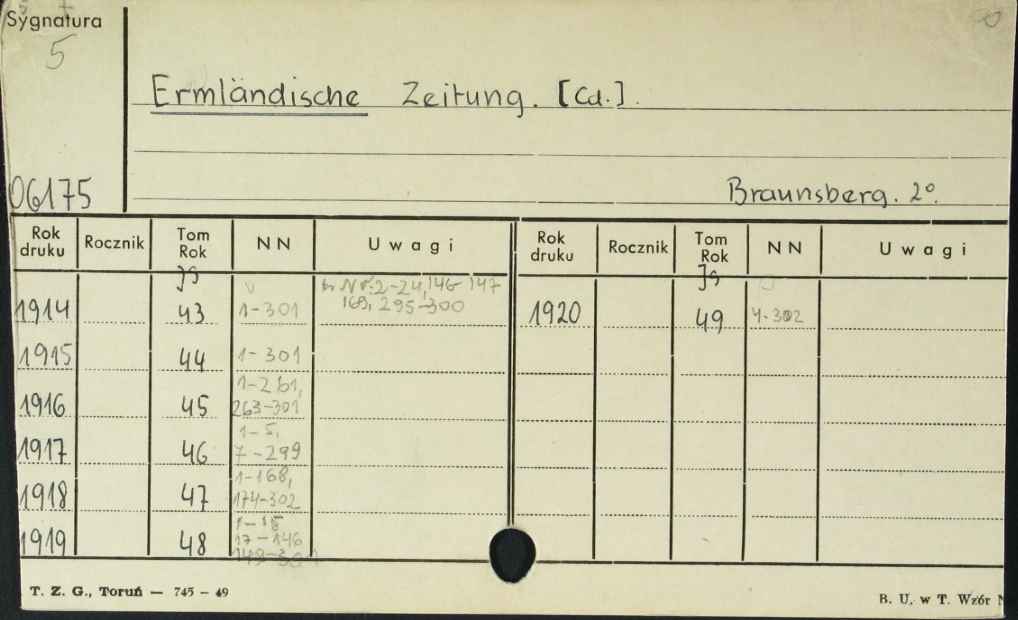 Sygnatura
5
Ermländische Zeitung. [Cd.].
06175
Braunsberg. 2°.
Rok druku Rocznik Tom Rok NN Uwagi Rok druku Rocznik Tom Rok NN Uwagi
Jg Jg
1914 43 1-301 Nr. 2-24, 146-147
169, 295-300 1920 49 302
1915 44 1-301
1916 45 1-261,
263-301
1917 46 1-5,
7-299
1918 47 1-168,
174-302
1919 48 1-15
17-146
T. Z. G., Toruń — 745 - 49
B. U. w T. Wzór